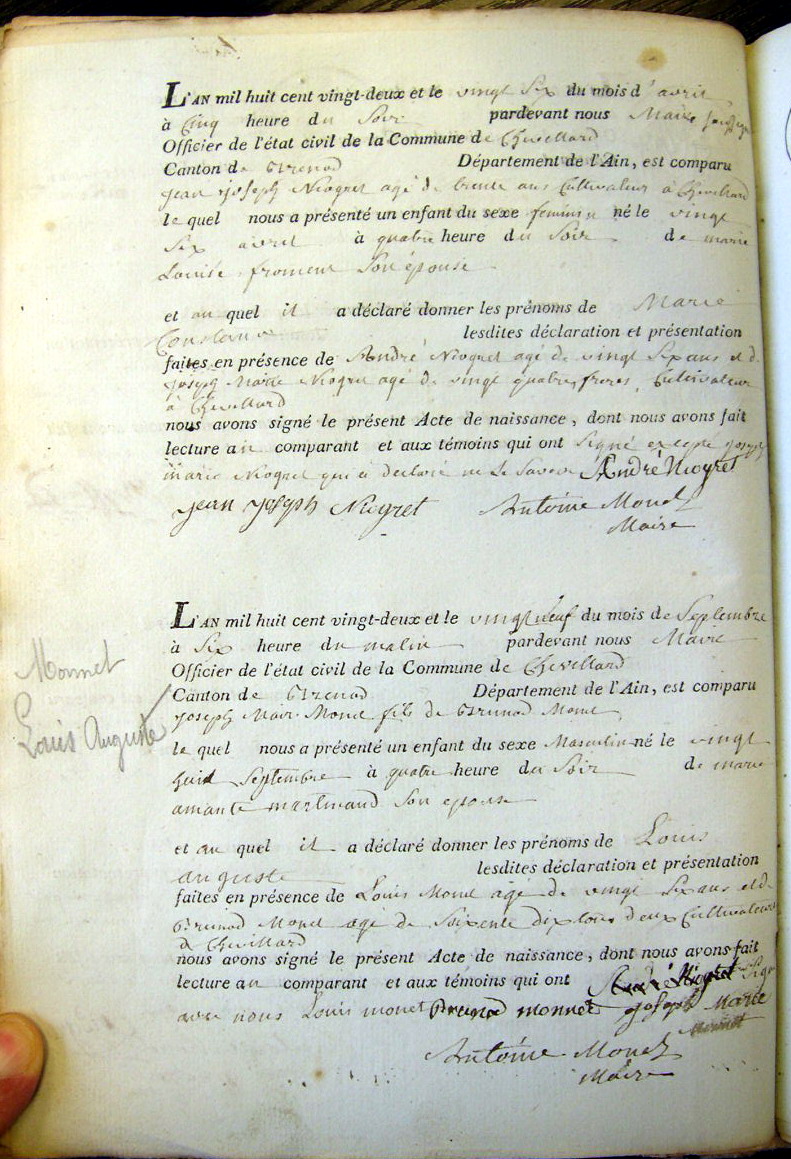 L'AN mil huit cent vingt-deux et le vingt Six du mois d'avril
à Cinq heure du Soir pardevant nous Maire
Officier de l'état civil de la Commune de Chevillard
Canton de Brenod Département de l'Ain, est comparu
jean joseph Niogret agé de trente ans Cultivateur à Chevillard
le quel nous a présenté un enfant du sexe feminin né le vingt
Six avril à quatre heure du Soir de marie
Louise froment Son épouse
et au quel il a déclaré donner les prénoms de Marie
Constance lesdites déclaration et présentation
faites en présence de André Niogret agé de vingt Six ans et de
joseph Marie Niogret agé de vingt quatre, freres, Cultivateur
à Chevillard
nous avons signé le présent Acte de naissance, dont nous avons fait
lecture au comparant et aux témoins qui ont Signé excepté joseph
marie Niogret qui a declaré ne le Savoir André Niogret
jean joseph Niogret Antoine Monet
Maire
L'AN mil huit cent vingt-deux et le vingt neuf du mois de Septembre
à Six heure du matin pardevant nous Maire
Officier de l'état civil de la Commune de Chevillard
Monnet
Canton de Brenod Département de l'Ain, est comparu
joseph Marie Monet fils de Brunod Monet
Louis Auguste
le quel nous a présenté un enfant du sexe Masculin né le vingt
huit Septembre à quatre heure du Soir de marie
amante martinand Son epouse
et au quel il a déclaré donner les prénoms de Louis
auguste lesdites déclaration et présentation
faites en présence de Louis Monet agé de vingt Six ans et de
Brunod Monet agé de Soixente dix tous deux Cultivateurs
de Chevillard
nous avons signé le présent Acte de naissance, dont nous avons fait
lecture au comparant et aux témoins qui ont André Niogret Signé
avec nous Louis monet Brunod monnet joseph Marie
Monnet
Antoine Monet
Maire